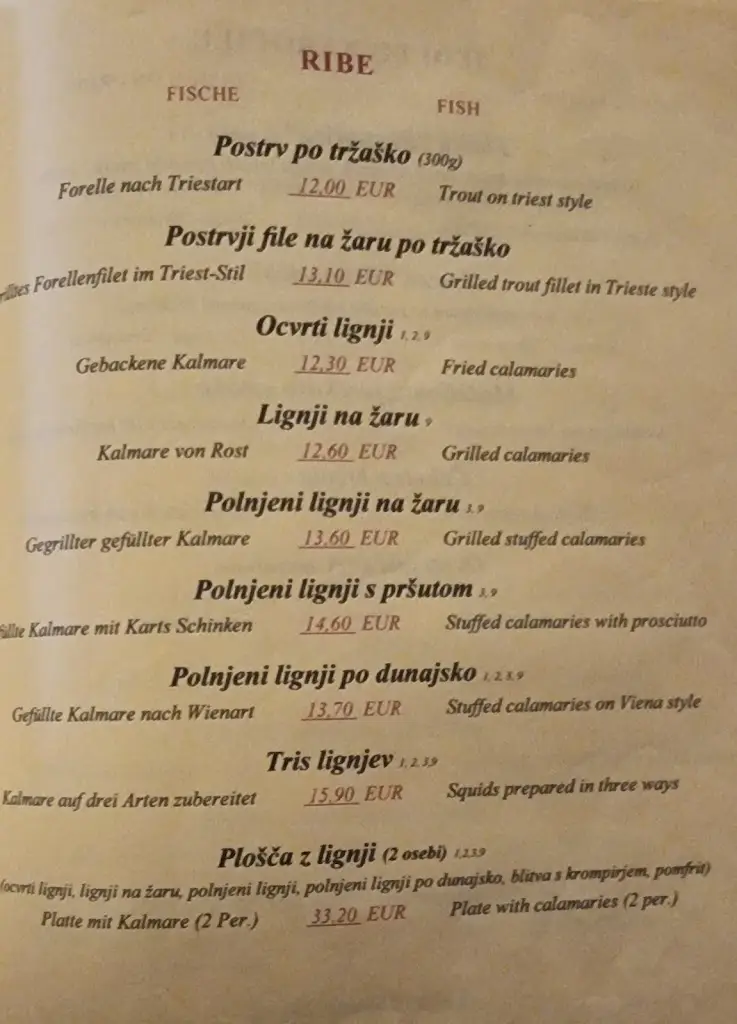 RIBE
FISCHE FISH
Postrv po tržaško (300g)
Forelle nach Triestart 12,00 EUR Trout on triest style
Postrvji file na žaru po tržaško
Forellenfilet im Triest-Stil 13,10 EUR Grilled trout fillet in Trieste style
Ocvrti lignji 1, 2, 9
Gebackene Kalmare 12,30 EUR Fried calamaries
Lignji na žaru 9
Kalmare von Rost 12,60 EUR Grilled calamaries
Polnjeni lignji na žaru 3, 9
Gegrillter gefüllter Kalmare 13,60 EUR Grilled stuffed calamaries
Polnjeni lignji s pršutom 3, 9
Kalmare mit Karts Schinken 14,60 EUR Stuffed calamaries with prosciutto
Polnjeni lignji po dunajsko 1, 2, 3, 9
Gefüllte Kalmare nach Wienart 13,70 EUR Stuffed calamaries on Viena style
Tris lignjev 1, 2, 3,9
Kalmare auf drei Arten zubereitet 15,90 EUR Squids prepared in three ways
Plošča z lignji (2 osebi) 1,2,3,9
(ocvrti lignji, lignji na žaru, polnjeni lignji, polnjeni lignji po dunajsko, blitva s krompirjem, pomfrit)
Platte mit Kalmare (2 Per.) 33,20 EUR Plate with calamaries (2 per.)